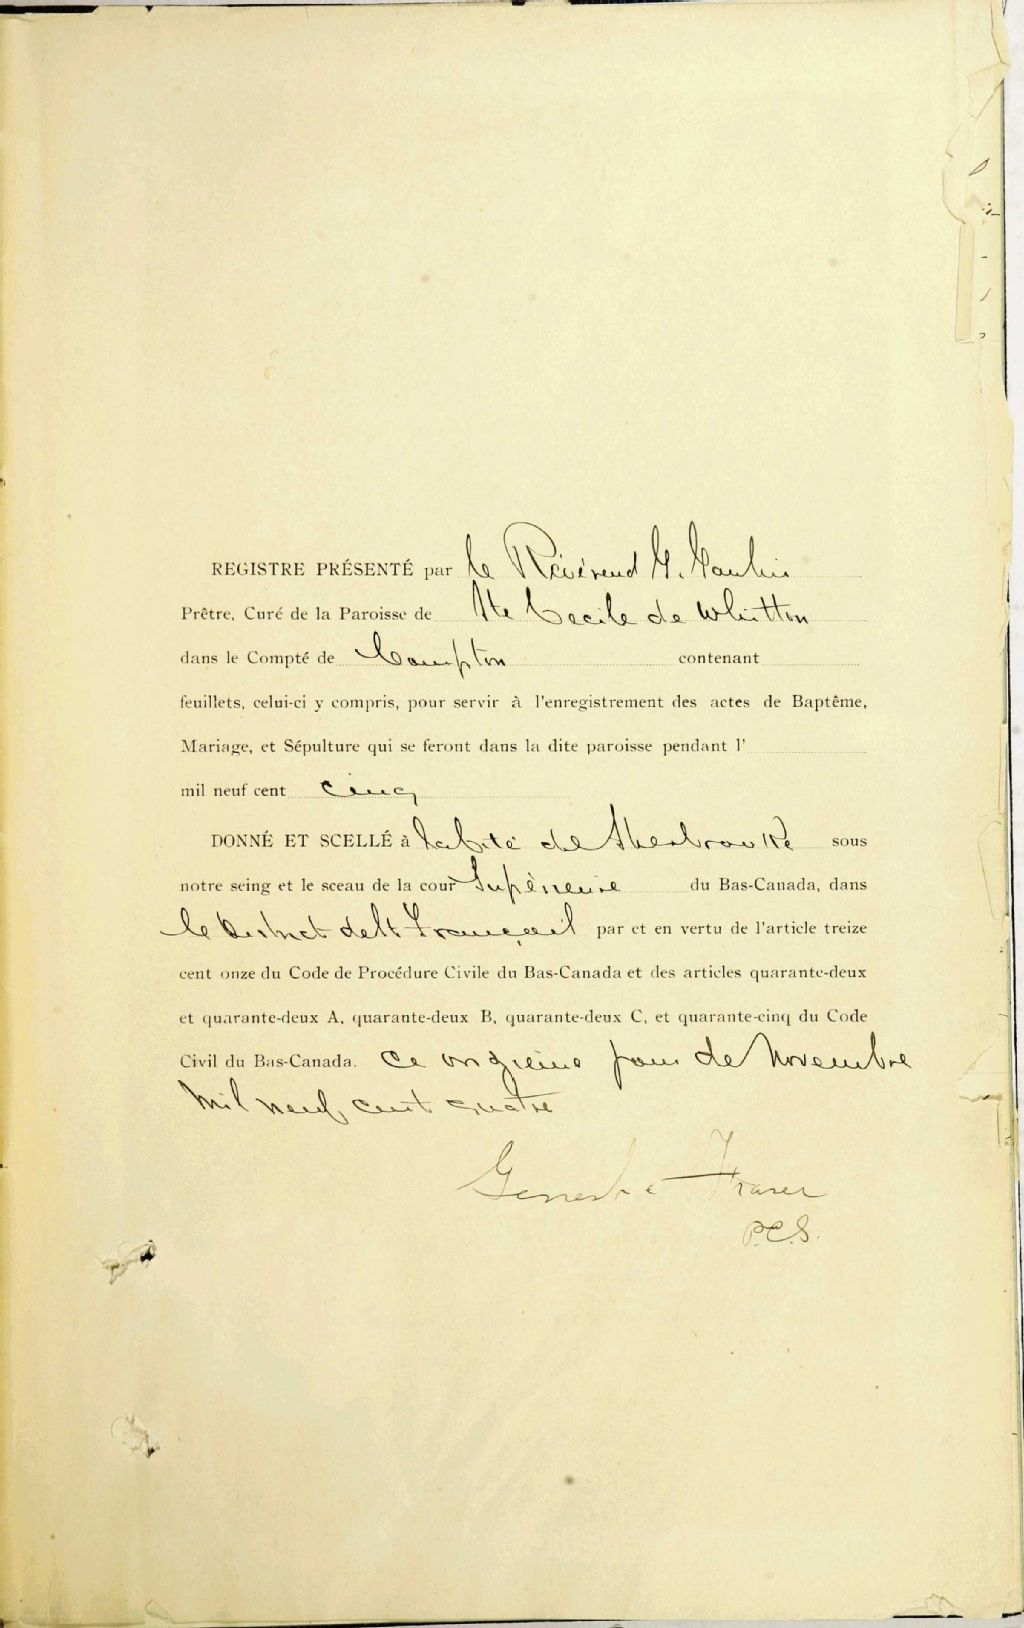 REGISTRE PRÉSENTÉ par le Révérend G. Gaulin
Prêtre, Curé de la Paroisse de Ste Cecile de Whitton
dans le Compté de Compton contenant
feuillets, celui-ci y compris, pour servir à l'enregistrement des actes de Baptême,
Mariage, et Sépulture qui se feront dans la dite paroisse pendant l'
mil neuf cent cinq
DONNÉ ET SCELLÉ à la Cité de Sherbrooke sous
notre seing et le sceau de la cour Supérieure du Bas-Canada, dans
le District de St Françcoil par et en vertu de l'article treize
cent onze du Code de Procédure Civile du Bas-Canada et des articles quarante-deux
et quarante-deux A, quarante-deux B, quarante-deux C, et quarante-cinq du Code
Civil du Bas-Canada. Ce onzieme jour de Novembre
Mil neuf cent quatre
Genest & Fraser
P.C.S.